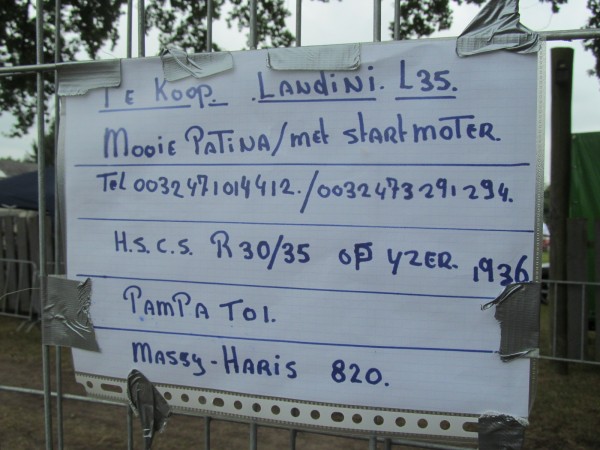 TE KOOP. LANDINI. L35.
MOOIE PATINA/met startmoTER.
Tel 0032471014412./0032473291294.
H.S.C.S. R 30/35 OP YZER. 1936
PAMPA TO1.
MASSY-HARIS 820.